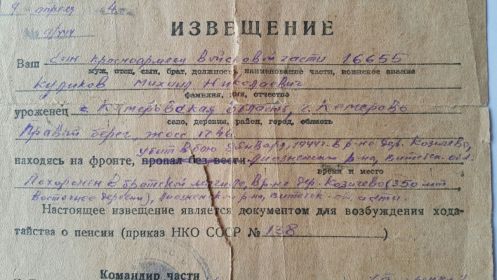 9 апрел 4
ИЗВЕЩЕНИЕ
Ваш сын красноармеец Войсковой части 16655
муж, отец, сын, брат, должность, наименование части, воинское звание
Куликов Михаил Николаевич
фамилия, имя, отчество
уроженец г. Кемеровская область, г. Кемерово
село, деревня, район, город, область
Правый берег
убит в бою января 1944 г. в р-не дер. Козлово,
находясь на фронте, пропал без вести р-на, Витебск. обл.
время и место
Похоронен в братской могиле, в р-не дер. Козлово (350 мт
восточнее деревни),
Настоящее извещение является документом для возбуждения хода-
тайства о пенсии (приказ НКО СССР № 138 )
Командир части